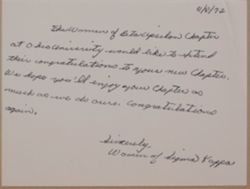 11/8/72
The Women of Beta Upsilon Chapter
at Ohio University would like to extend
their congratulations to your new Chapter.
We hope you'll enjoy your Chapter as
much as we do ours. Congratulations
again.
Sincerely,
Women of Sigma Kappa